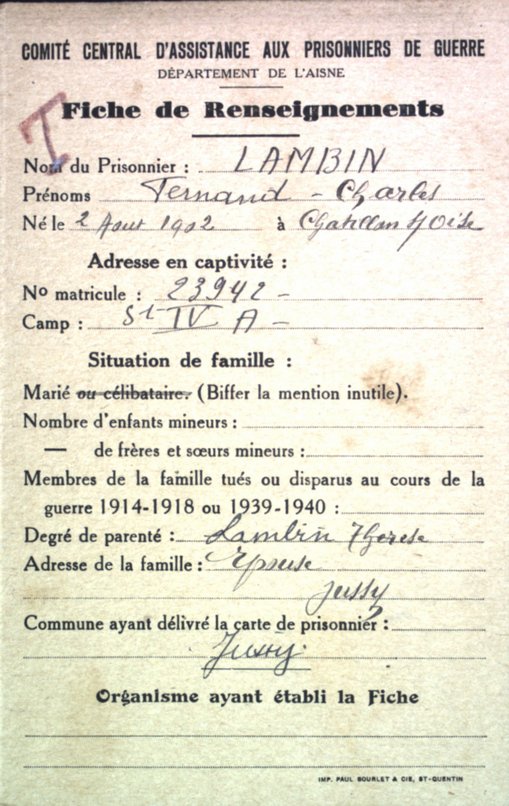 COMITÉ CENTRAL D'ASSISTANCE AUX PRISONNIERS DE GUERRE
DÉPARTEMENT DE L'AISNE
Fiche de Renseignements
T
Nom du Prisonnier : LAMBIN
Prénoms Fernand - Charles
Né le 2 Aout 1902 à Chatillon s/ Oise
Adresse en captivité :
No matricule : 23942 -
Camp : St IV A -
Situation de famille :
Marié ou célibataire. (Biffer la mention inutile).
Nombre d'enfants mineurs :
— de frères et sœurs mineurs :
Membres de la famille tués ou disparus au cours de la
guerre 1914-1918 ou 1939-1940 :
Degré de parenté : Lambin Therese
Adresse de la famille : Epouse
Jussy
Commune ayant délivré la carte de prisonnier :
Jussy.
Organisme ayant établi la Fiche
IMP. PAUL BOURLET & CIE, ST-QUENTIN